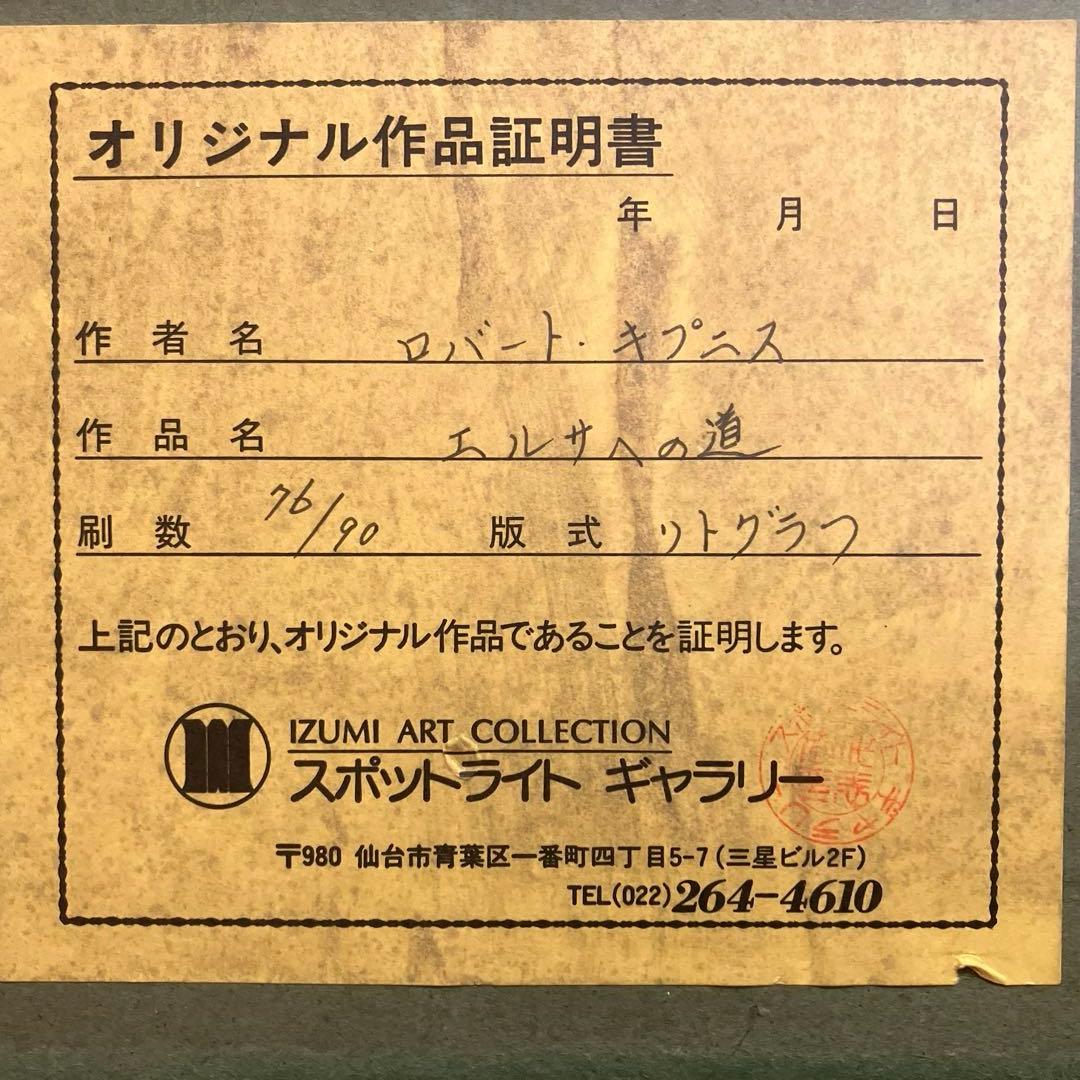 オリジナル作品証明書
年 月 日
作者名 ロバート・キプニス
作品名 エルサへの道
刷数 76/90 版式 リトグラフ
上記のとおり、オリジナル作品であることを証明します。
IZUMI ART COLLECTION
スポットライト ギャラリー
〒980 仙台市青葉区一番町四丁目5-7(三星ビル2F)
TEL(022)264-4610